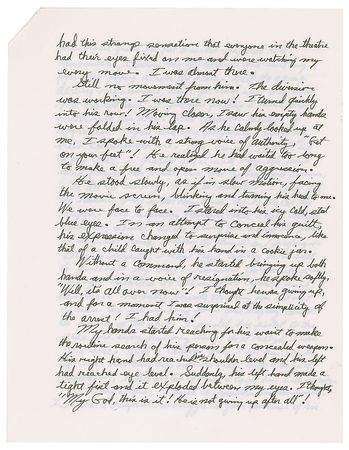 had this strange sensation that everyone in the theatre
had their eyes fixed on me and were watching my
every move. I was almost there.
Still no movement from him. The diversion
was working. I was there now! I turned quickly
into his row! Moving closer, I saw his empty hands
were folded in his lap. As he calmly looked up at
me, I spoke with a strong voice of authority, "Get
on your feet"! He realized he had waited too long
to make a free and open move of aggression.
He stood slowly, as if in slow motion, facing
the movie screen, blinking and turning his head to me.
We were face to face. I stared into his icy cold, steel
blue eyes. In an attempt to conceal his guilt,
his expression changed to surprise and innocence, like
that of a child caught with his hand in a cookie jar.
Without a command, he started bringing up both
hands and in a voice of resignation, he spoke softly,
"Well, it's all over now"! I thought he was giving up,
and for a moment I was surprised at the simplicity of
the arrest! I had him!
My hands started reaching for his waist to make
the routine search of his person for a concealed weapon.
His right hand had reached shoulder level and his left
had reached eye level. Suddenly, his left hand made a
tight fist and it exploded between my eyes. I thought,
"My God, this is it! He is not giving up after all"!